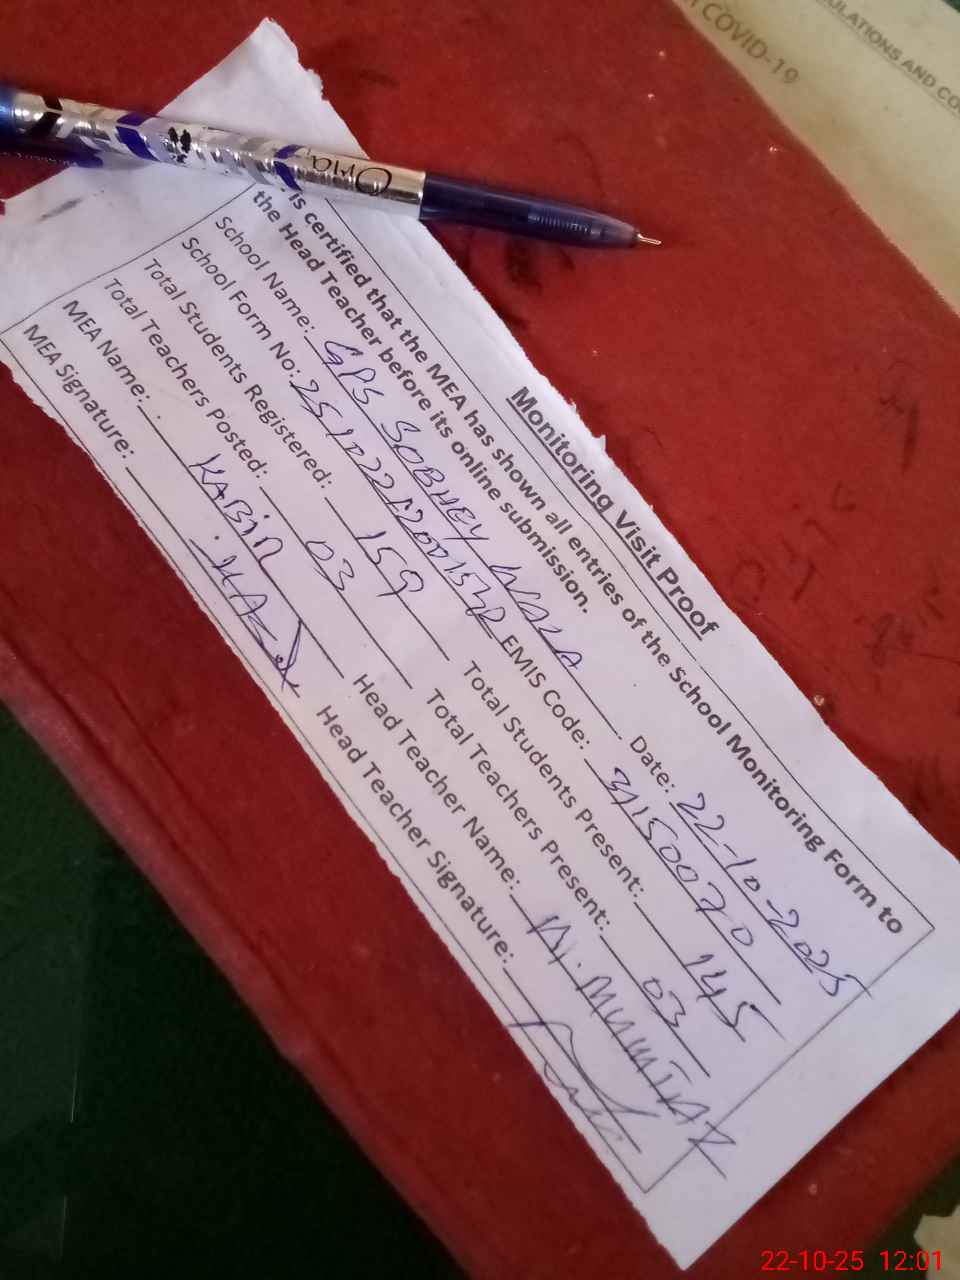 Monitoring Visit Proof
is certified that the MEA has shown all entries of the School Monitoring Form to
the Head Teacher before its online submission.
School Name: GPS SOBHEY WALA Date: 22-10-2025
School Form No: EMIS Code: 31150070
Total Students Registered: 159 Total Students Present: 145
Total Teachers Posted: 03 Total Teachers Present: 03
MEA Name: KABIR Head Teacher Name: M. MUMTAZ
MEA Signature: Head Teacher Signature:
COVID-19
ULATIONS AND CO
22-10-25 12:01